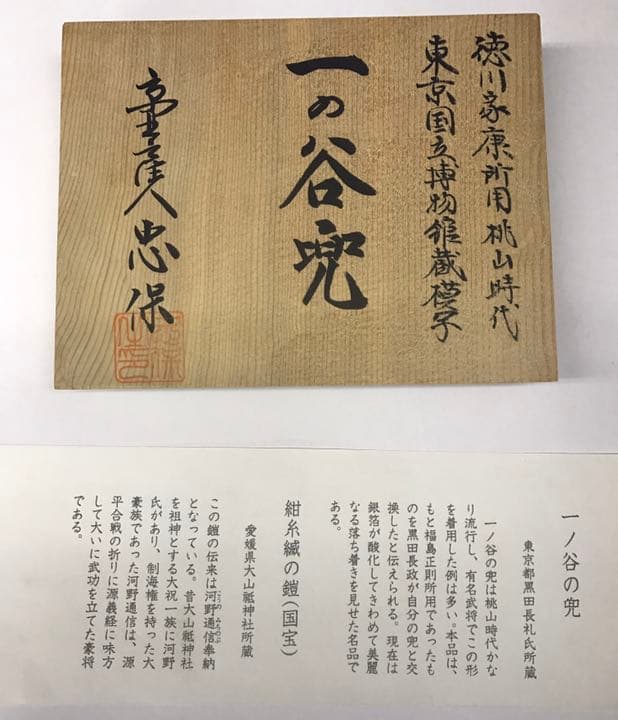 徳川家康所用桃山時代
東京国立博物館蔵模写
一の谷兜
忠保
一ノ谷の兜
東京都黒田長礼氏所蔵
一ノ谷の兜は桃山時代かな
り流行し、有名武将でこの形
を着用した例は多い。本品は、
もと福島正則所用であったも
のを黒田長政が自分の兜と交
換したと伝えられる。現在は
銀箔が酸化してきわめて美麗
なる落ち着きを見せた名品で
ある。
紺糸縅の鎧(国宝)
愛媛県大山祗神社所蔵
この鎧の伝来は河野通信奉納
となっている。昔大山祗神社
を祖神とする大祝一族に河野
氏があり、制海権を持った大
豪族であった河野通信は、源
平合戦の折りに源義経に味方
して大いに武功を立てた豪将
である。